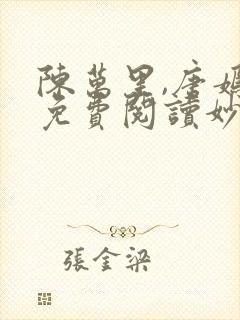 陳萬里,唐嫣
免費閱讀妙
張金梁